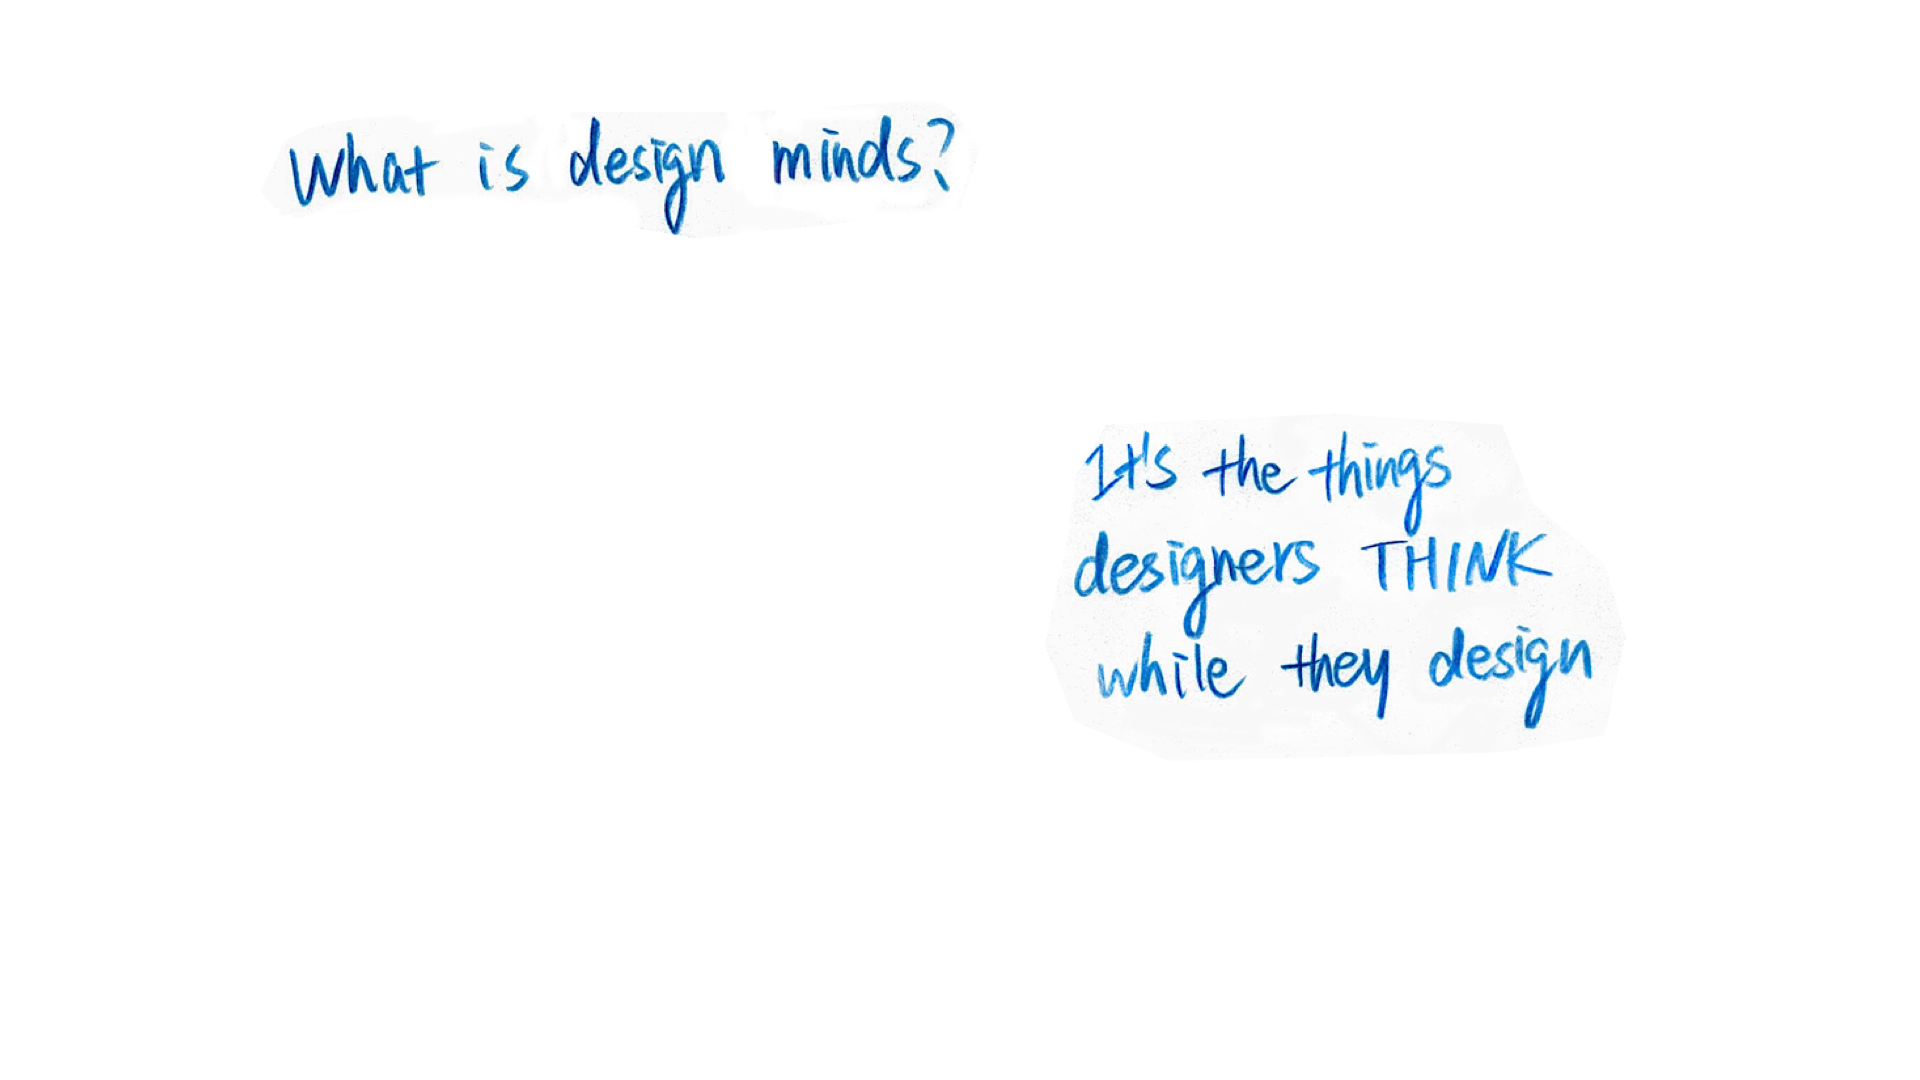 What is design minds?
It's the things
designers THINK
while they design